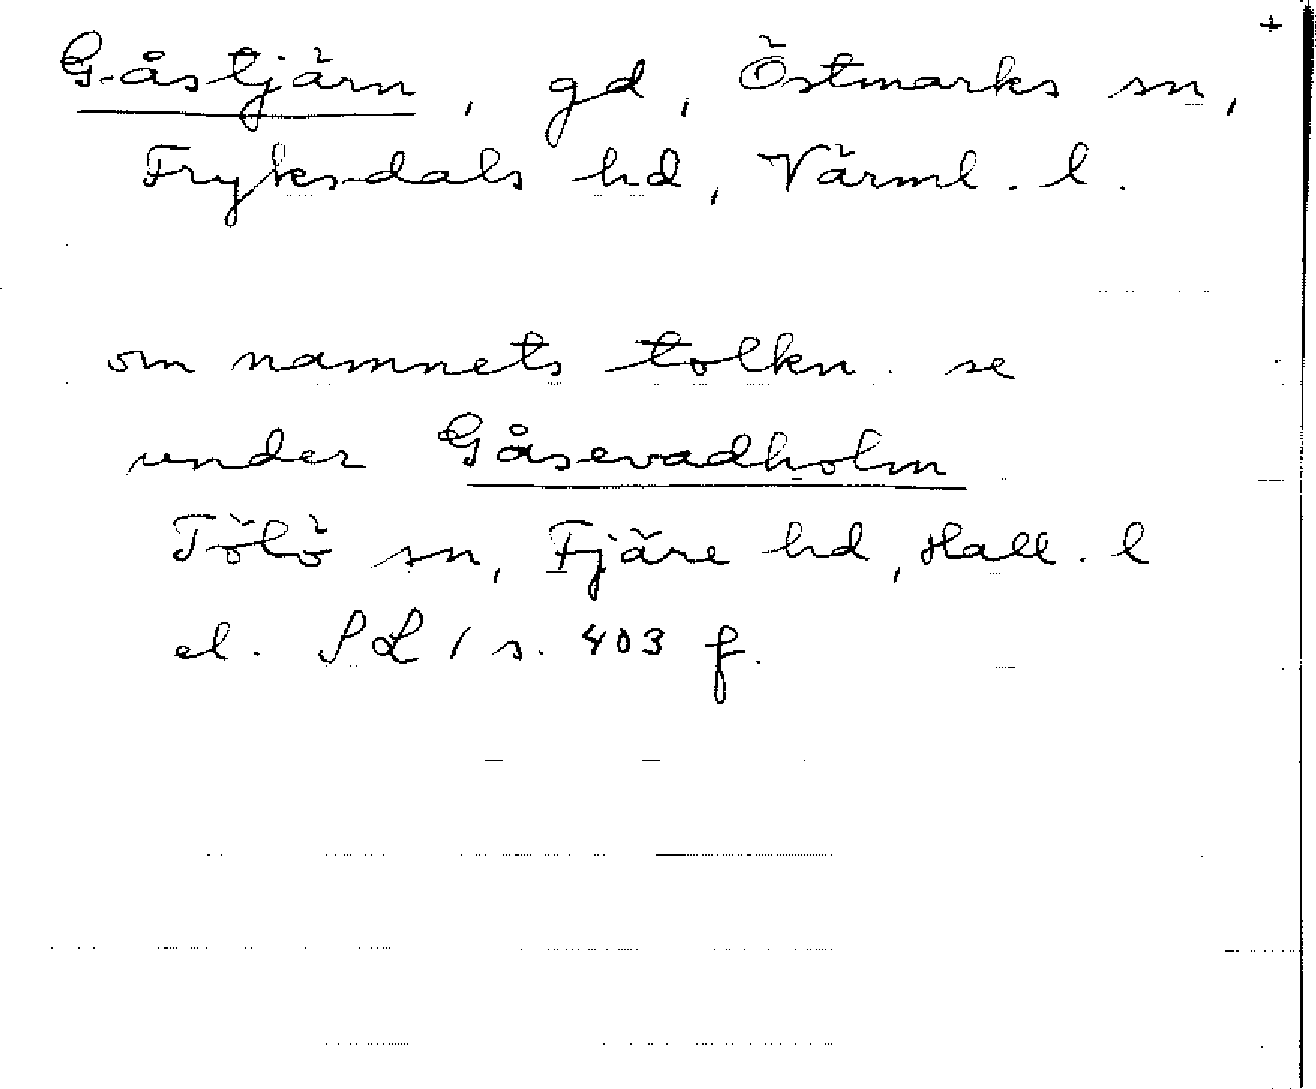 +
Gåstjärn, gd, Östmarks sn,
Fryksdals hd, Värml. l.
om namnets tolkn. se
under Gåsevadholm
Tölö sn, Fjäre hd, Hall. l
el. SOL 1 s. 403 f.